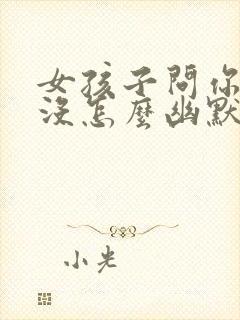 女孩子問你
沒怎麼幽默
小光